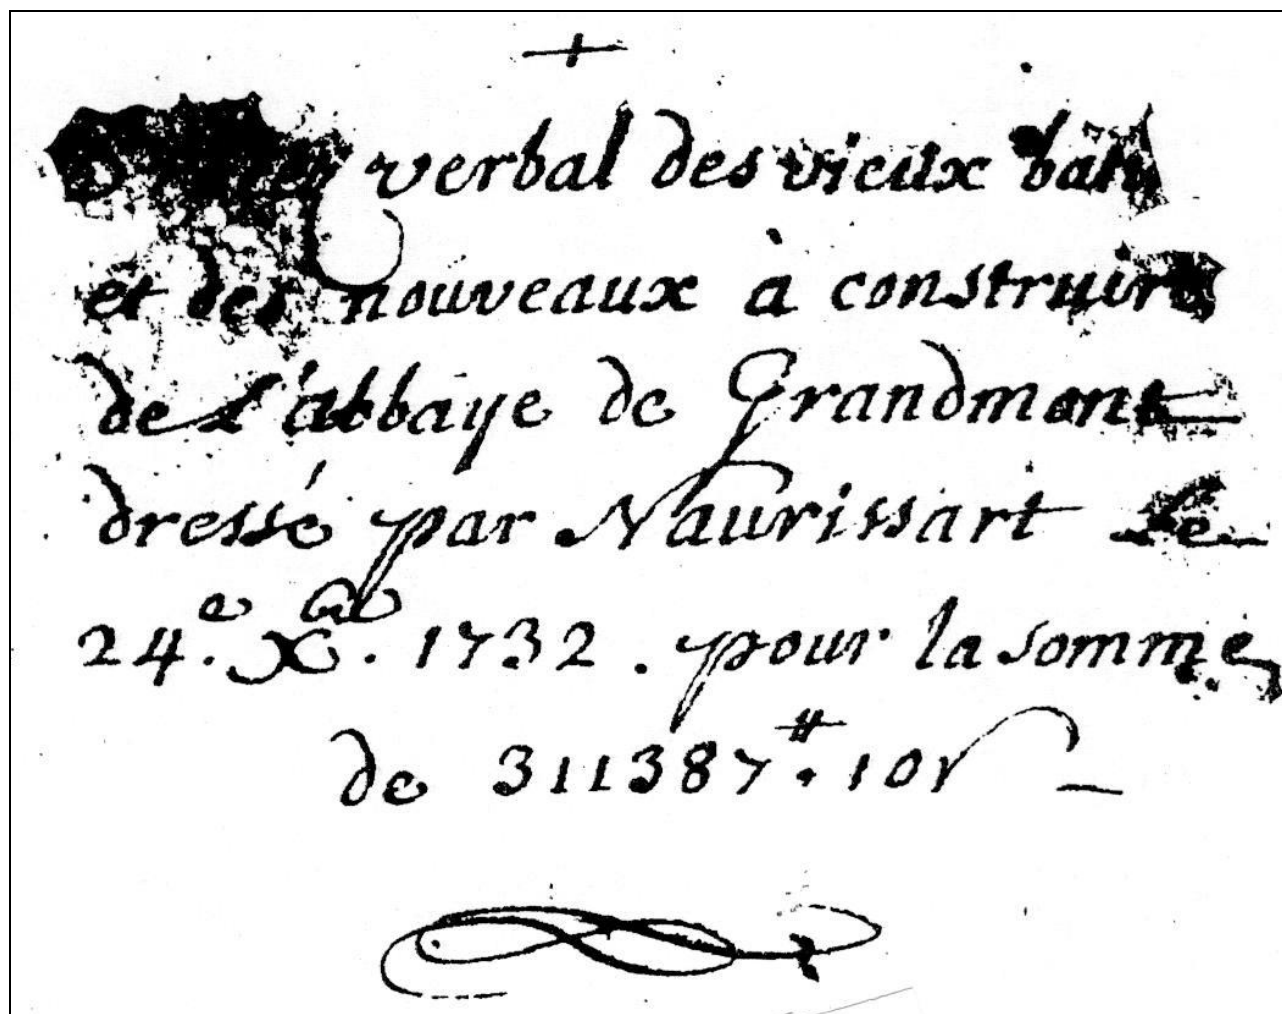 verbal des vieux bati
et des nouveaux à construire
de l'abbaye de Grandmont
dressé par Naurissart le
24.e Xbre. 1732. pour la somme
de 311387.# 10s